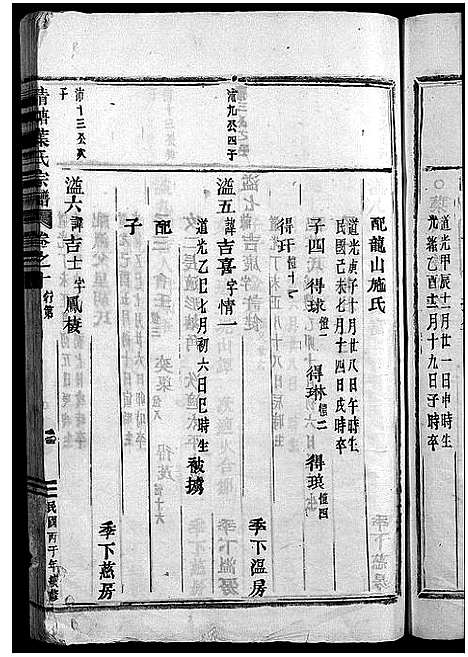 道光甲辰十一月廿一日申時生
光緒乙酉二月十九日子時卒
配龍山施氏
道光庚子十月廿八日午時生
民國己未七月十四日戌時卒
子四 得球恒一 得琳恒二 得琅恒四
得玕恒十一
季下溫房
沛九公四子
溢五諱吉喜字情一
道光乙巳七月初六日巳時生 被擄
配
子
季下慈房
沛十三公次子
溢六諱吉士字鳳棲
清塘葉氏宗譜 卷之一 行第
民國丙子年續修